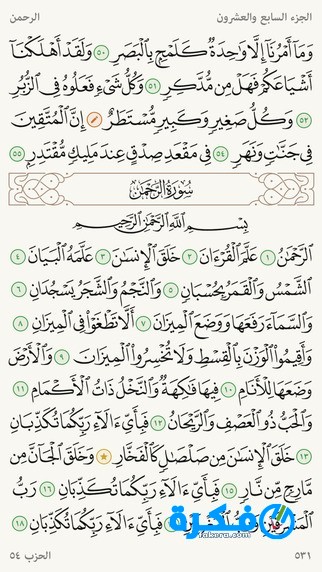 الجزء السابع والعشرون
الرحمن
وَمَآ أَمۡرُنَآ إِلَّا وَٰحِدَةٞ كَلَمۡحِۭ بِٱلۡبَصَرِ ٥٠ وَلَقَدۡ أَهۡلَكۡنَآ
أَشۡيَاعَكُمۡ فَهَلۡ مِن مُّدَّكِرٖ ٥١ وَكُلُّ شَيۡءٖ فَعَلُوهُ فِي ٱلزُّبُرِ
٥٢ وَكُلُّ صَغِيرٖ وَكَبِيرٖ مُّسۡتَطَرٌ إِنَّ ٱلۡمُتَّقِينَ
فِي جَنَّٰتٖ وَنَهَرٖ ٥٤ فِي مَقۡعَدِ صِدۡقٍ عِندَ مَلِيكٖ مُّقۡتَدِرِۭ ٥٥
سُورَةُ الرَّحۡمَٰن
بِسۡمِ ٱللَّهِ ٱلرَّحۡمَٰنِ ٱلرَّحِيمِ
ٱلرَّحۡمَٰنُ ١ عَلَّمَ ٱلۡقُرۡءَانَ ٢ خَلَقَ ٱلۡإِنسَٰنَ ٣ عَلَّمَهُ ٱلۡبَيَانَ ٤
ٱلشَّمۡسُ وَٱلۡقَمَرُ بِحُسۡبَانٖ ٥ وَٱلنَّجۡمُ وَٱلشَّجَرُ يَسۡجُدَانِ ٦
وَٱلسَّمَآءَ رَفَعَهَا وَوَضَعَ ٱلۡمِيزَانَ ٧ أَلَّا تَطۡغَوۡاْ فِي ٱلۡمِيزَانِ ٨
وَأَقِيمُواْ ٱلۡوَزۡنَ بِٱلۡقِسۡطِ وَلَا تُخۡسِرُواْ ٱلۡمِيزَانَ ٩ وَٱلۡأَرۡضَ
وَضَعَهَا لِلۡأَنَامِ ١٠ فِيهَا فَٰكِهَةٞ وَٱلنَّخۡلُ ذَاتُ ٱلۡأَكۡمَامِ ١١
وَٱلۡحَبُّ ذُو ٱلۡعَصۡفِ وَٱلرَّيۡحَانُ ١٢ فَبِأَيِّ ءَالَآءِ رَبِّكُمَا تُكَذِّبَانِ
١٣ خَلَقَ ٱلۡإِنسَٰنَ مِن صَلۡصَٰلٖ كَٱلۡفَخَّارِ وَخَلَقَ ٱلۡجَآنَّ مِن
مَّارِجٖ مِّن نَّارٖ ١٥ فَبِأَيِّ ءَالَآءِ رَبِّكُمَا تُكَذِّبَانِ ١٦ رَبُّ
ٱلۡمَشۡرِقَيۡنِ وَرَبُّ ٱلۡمَغۡرِبَيۡنِ ١٧ فَبِأَيِّ ءَالَآءِ رَبِّكُمَا تُكَذِّبَانِ ١٨
فكرة
fakera.com
الحزب ٥٤
٥٣١